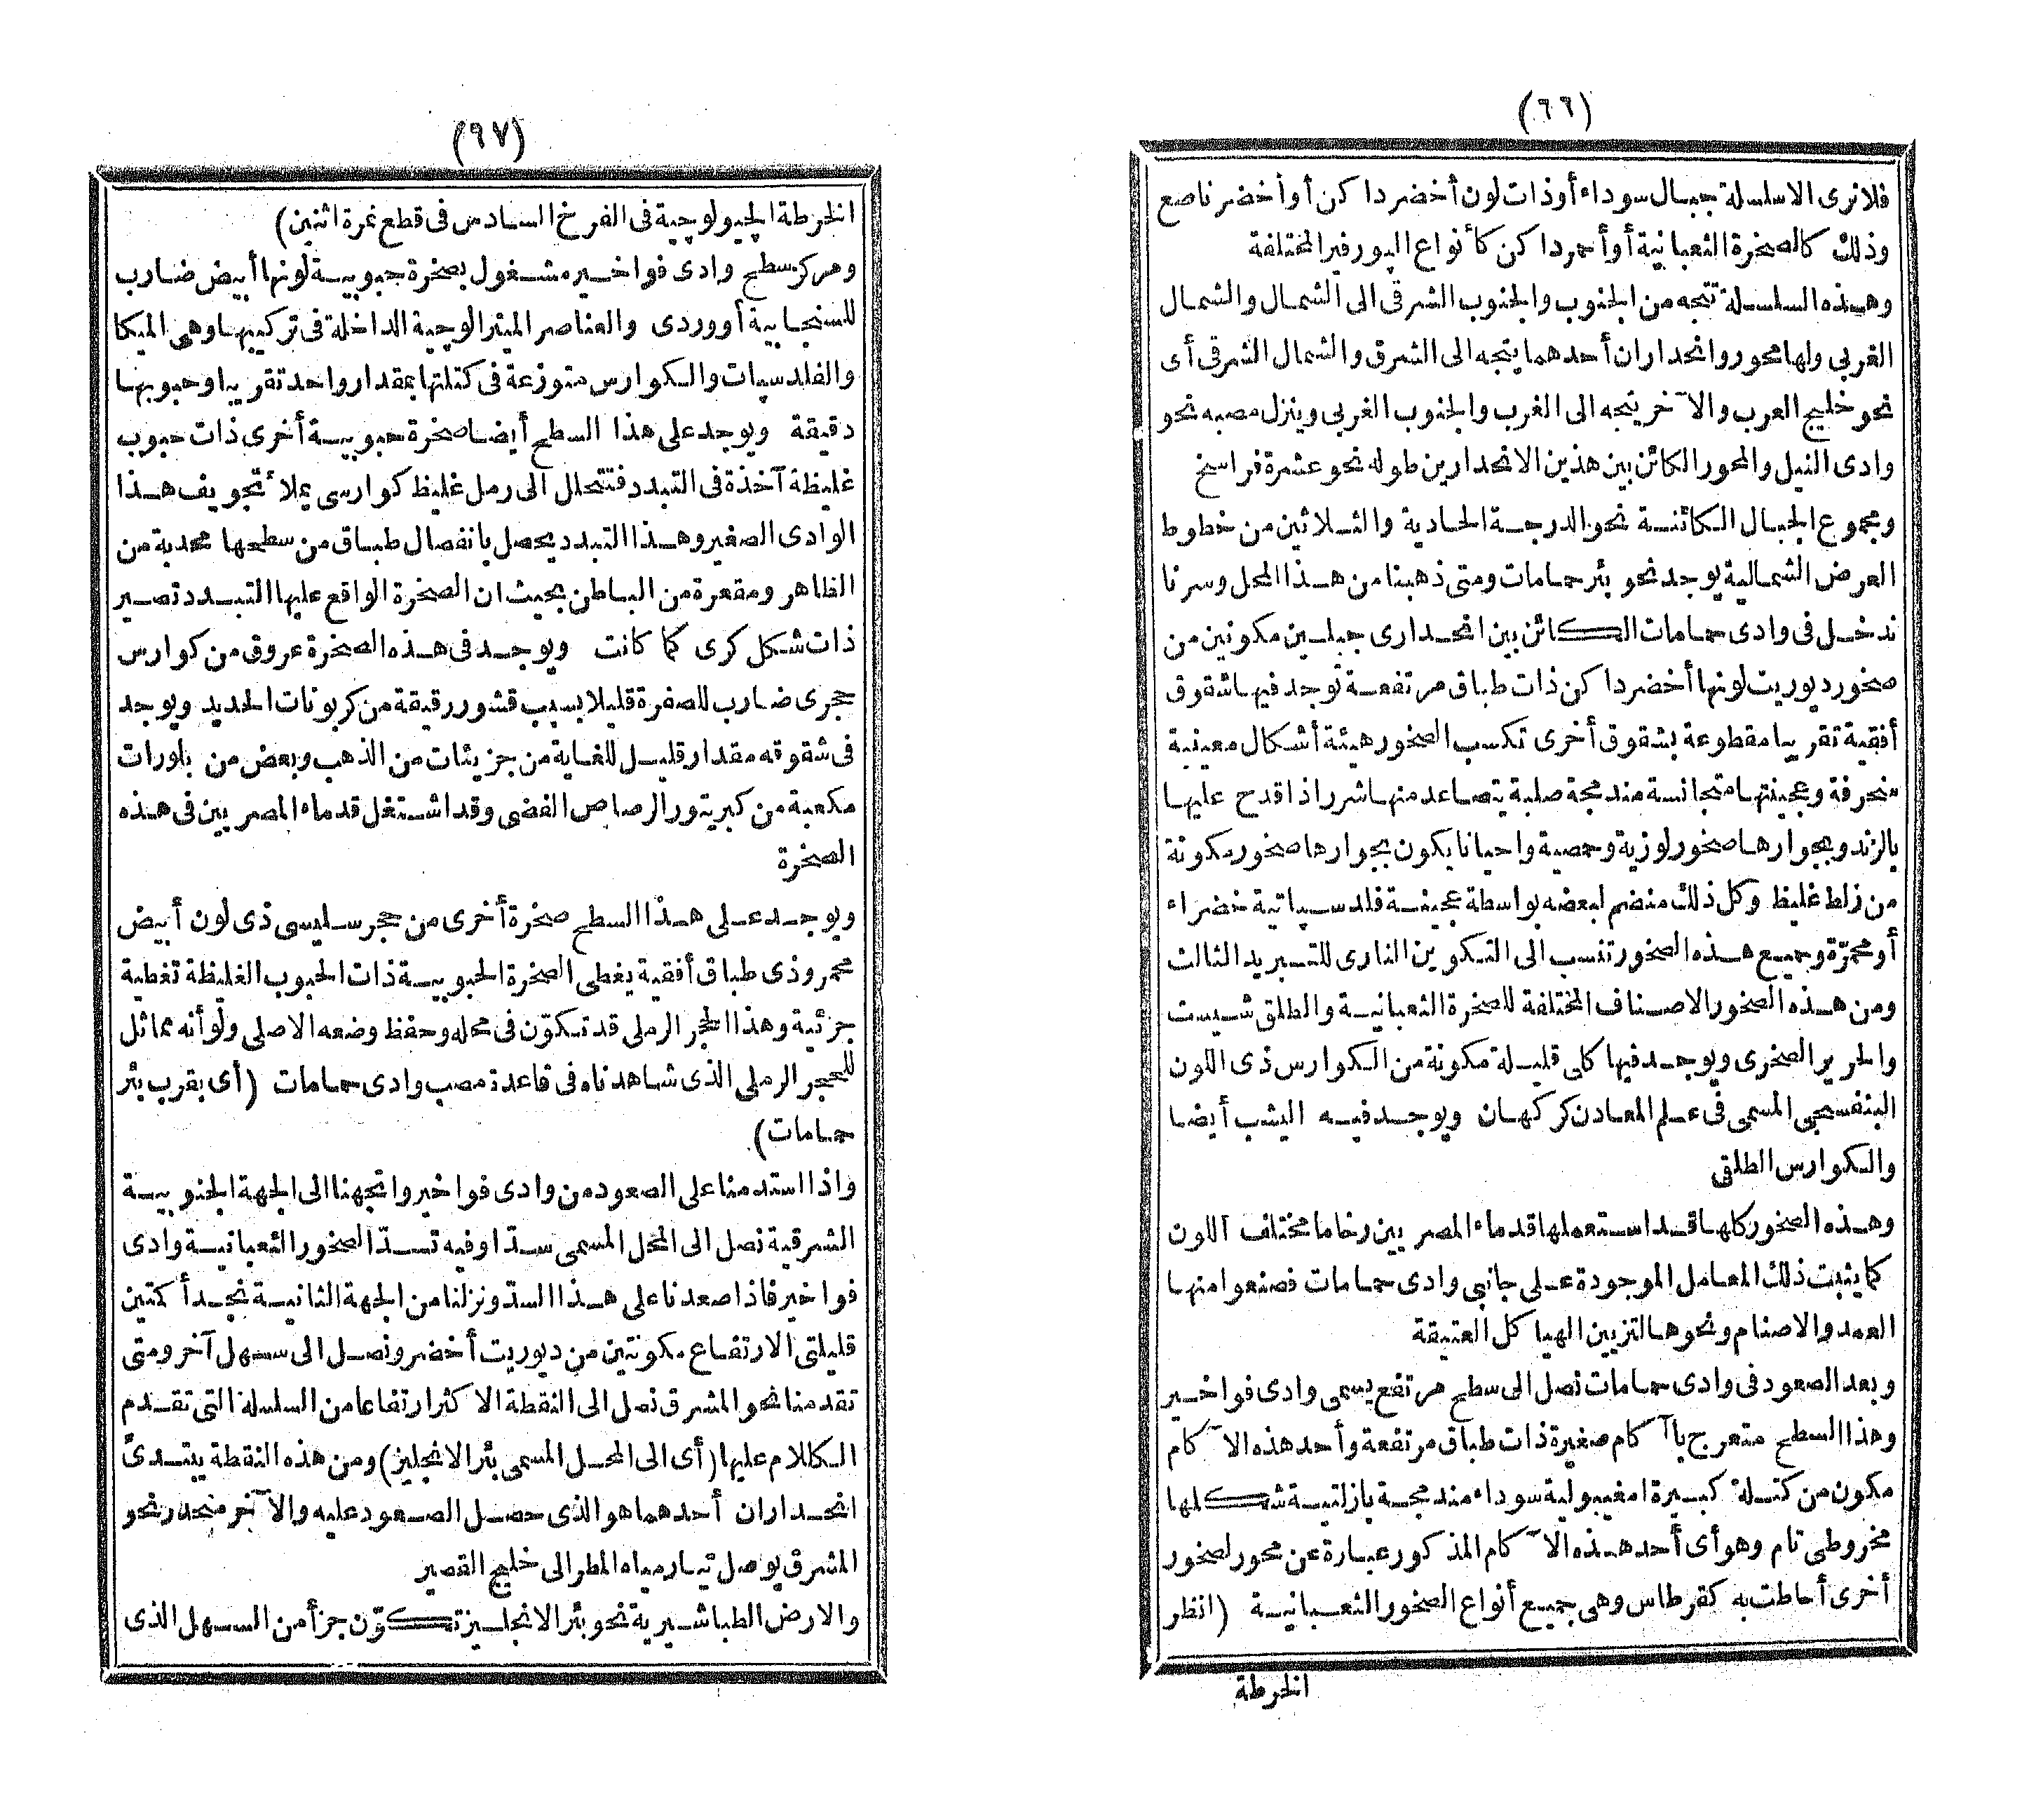 (٦٦)
فلا نرى الا سلسلة جبال سوداء أو ذات لون أخضر داكن أو أخضر ناصع
وذلك كالصخرة الثعبانية أو أحمر داكن كأنواع البورفير المختلفة
وهذه السلسلة تتجه من الجنوب والجنوب الشرقى الى الشمال والشمال
الغربى ولها محور وانحداران أحدهما يتجه الى الشرق والشمال الشرقى أى
نحو خليج العرب والآخر يتجه الى الغرب والجنوب الغربى وينزل مصبه نحو
وادى النيل والمحور الكائن بين هذين الانحدارين طوله نحو عشرة فراسخ
ومجموع الجبال الكائنة نحو الدرجة الحادية والثلاثين من خطوط
العرض الشمالية يوجد نحو بئر حمامات ومتى ذهبنا من هذا المحل وسرنا
ندخل فى وادى حمامات الكائن بين انحدارى جبلين مكونين من
صخور ديوريت لونها أخضر داكن ذات طباق مرتفعة توجد فيها شقوق
أفقية تقريبا مقطوعة بشقوق أخرى تكسب الصخور هيئة أشكال معينية
منحرفة وعجينتها متجانسة مندمجة صلبة يتصاعد منها شرر اذا قدح عليها
بالزند وبجوارها صخور لوزية وحمصية واحيانا يكون بجوارها صخور مكونة
من زلط غليظ وكل ذلك منضم لبعضه بواسطة عجينة فلدسپاتية خضراء
أو محمرّة وجميع هذه الصخور تنسب الى التكوين النارى للتبريد الثالث
ومن هذه الصخور الاصناف المختلفة للصخرة الثعبانية والطلق شيست
والحرير الصخرى ويوجد فيها كلى قليلة مكونة من الكوارس ذى اللون
البنفسجى المسمى فى علم المعادن كركهان ويوجد فيه اليشب أيضا
والكوارس الطلقى
وهذه الصخور كلها قد استعملها قدماء المصريين رخاما مختلف اللون
كما يثبت ذلك المعامل الموجودة على جانبى وادى حمامات فصنعوا منها
العمد والاصنام ونحوها لتزيين الهياكل العتيقة
وبعد الصعود فى وادى حمامات نصل الى سطح مرتفع يسمى وادى فواخير
وهذا السطح متعرج بآكام صغيرة ذات طباق مرتفعة وأحد هذه الآكام
مكون من كتلة كبيرة امفيبولية سوداء مندمجة بازلتية شكلها
مخروطى تام وهو أى أحد هذه الآكام المذكور عبارة عن محور لصخور
أخرى أحاطت به كقرطاس وهى جميع أنواع الصخور الثعبانية (انظر
الخرطة
(٩٧)
الخرطة الجيولوجية فى الفرخ السادس فى قطع نمرة اثنين)
ومركز سطح وادى فواخير مشغول بصخرة حبوبية لونها أبيض ضارب
للسنجابية أو وردى والعناصر المينرالوجية الداخلة فى تركيبها وهى الميكا
والفلدسپات والكوارس متوزعة فى كتلتها بمقدار واحد تقريبا وحبوبها
دقيقة ويوجد على هذا السطح أيضا صخرة حبوبية أخرى ذات حبوب
غليظة آخذة فى التبدد فتتحلل الى رمل غليظ كوارسى يملأ تجويف هذا
الوادى الصغير وهذا التبدد يحصل بانفصال طباق من سطحها محدبة من
الظاهر ومقعرة من الباطن بحيث ان الصخرة الواقع عليها التبدد تصير
ذات شكل كرى كما كانت ويوجد فى هذه الصخرة عروق من كوارس
حجرى ضارب للصفرة قليلا بسبب قشور رقيقة من كربونات الحديد ويوجد
فى شقوقه مقدار قليل للغاية من جزيئات من الذهب وبعض من بلورات
مكعبة من كبريتور الرصاص الفضى وقد اشتغل قدماء المصريين فى هذه
الصخرة
ويوجد على هذا السطح صخرة أخرى من حجر سليسى ذى لون أبيض
محمر وذى طباق أفقية يغطى الصخرة الحبوبية ذات الحبوب الغليظة تغطية
جزئية وهذا الحجر الرملى قد تكوّن فى محله وحفظ وضعه الاصلى ولو أنه مماثل
للحجر الرملى الذى شاهدناه فى قاعدة مصب وادى حمامات (أى بقرب بئر
حمامات)
واذا استدمنا على الصعود من وادى فواخير واتجهنا الى الجهة الجنوبية
الشرقية نصل الى المحل المسمى سدّا وفيه تسدّ الصخور الثعبانية وادى
فواخير فاذا صعدنا على هذا السدّ ونزلنا من الجهة الثانية نجد أكمتين
قليلتى الارتفاع مكونتين من ديوريت أخضر ونصل الى سهل آخر ومتى
تقدمنا نحو المشرق نصل الى النقطة الاكثر ارتفاعا من السلسلة التى تقدم
الكلام عليها (أى الى المحل المسمى بئر الانجليز) ومن هذه النقطة يبتدئ
انحداران أحدهما هو الذى حصل الصعود عليه والآخر منحدر نحو
المشرق يوصل تيار مياه المطر الى خليج القصير
والارض الطباشيرية نحو بئر الانجليز تكوّن جزأ من السهل الذى